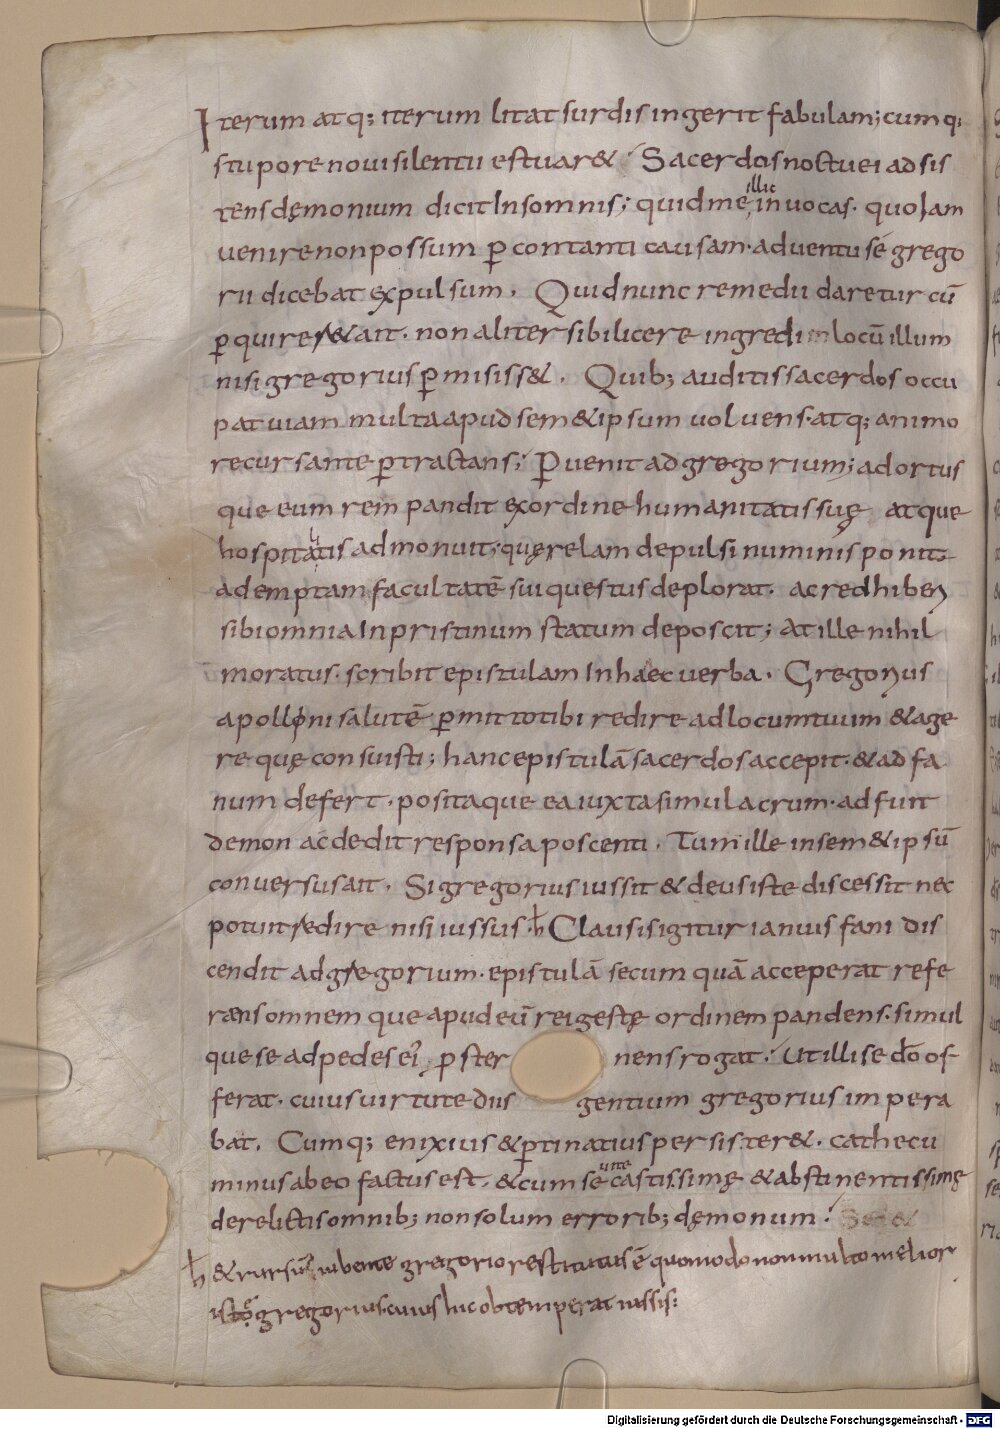 Iterum atq; iterum litat surdis ingerit fabulam; cumq;
stupore noui silentii estuar& ; Sacerdotis noctu ei adsis
tens dęmonium dicit In somnis; quid me illic inuocas. quo Iam
uenire non possum p̲ contanti causam. aduentu se grego
rii dicebat expulsum. Quid nunc remedii daretur cū
p̲quirer& ait. non aliter sibi licere ingredi in locū illum
nisi gregorius p̲misiss&. Quib; auditis sacerdos occu
pat uiam multa apud sem&ipsum uoluens. atq; animo
recursante p̲tractans; P̲uenit ad gregorium; adortus
que eum rem pandit ex ordine humanitatis suę atque
hospitalitatis admonuit; quęrelam depulsi numinis ponit;
ademptam facultatē sui questus deplorat. ac redhiben
sibi omnia In pristinum statum deposcit; At ille nihil
moratus. scribit epistulam In haec uerba. Gregorius
apolloni salutē p̲mitto tibi redire ad locum tuum & age
re quę consuisti; hanc epistulā sacerdos accepit. & ad fa
num defert. positaque ea iuxta simulacrum. adfuit
demon ac dedit responsa poscenti. Tum ille in sem&ipsū
conuersus ait. Si gregorius iussit & deus iste discessit nec
potuit redire nisi iussus. h̄ Clausis igitur ianuis fani dis
cendit ad gregorium. epistulā secum quā acceperat refe
rens omnem que apud eū rei gestę ordinem pandens. simul
que se ad pedes ei' p̲ster nens rogat; Ut illi se do of
ferat. cuius uirtute diis gentium gregorius impera
bat. Cumq; enixius & p̲tinatius persister&. cathecu
minus ab eo factus est. & cum se uite castissimę & abstinentissimę
derelictis omnib; non solum errorib; dęmonum; Sed &
h̄ & rursus iubente gregorio restitutus ē quomodo non multo melior
isto gregorius. cuius hic obtemperat iussis:
Digitalisierung gefördert durch die Deutsche Forschungsgemeinschaft - DFG